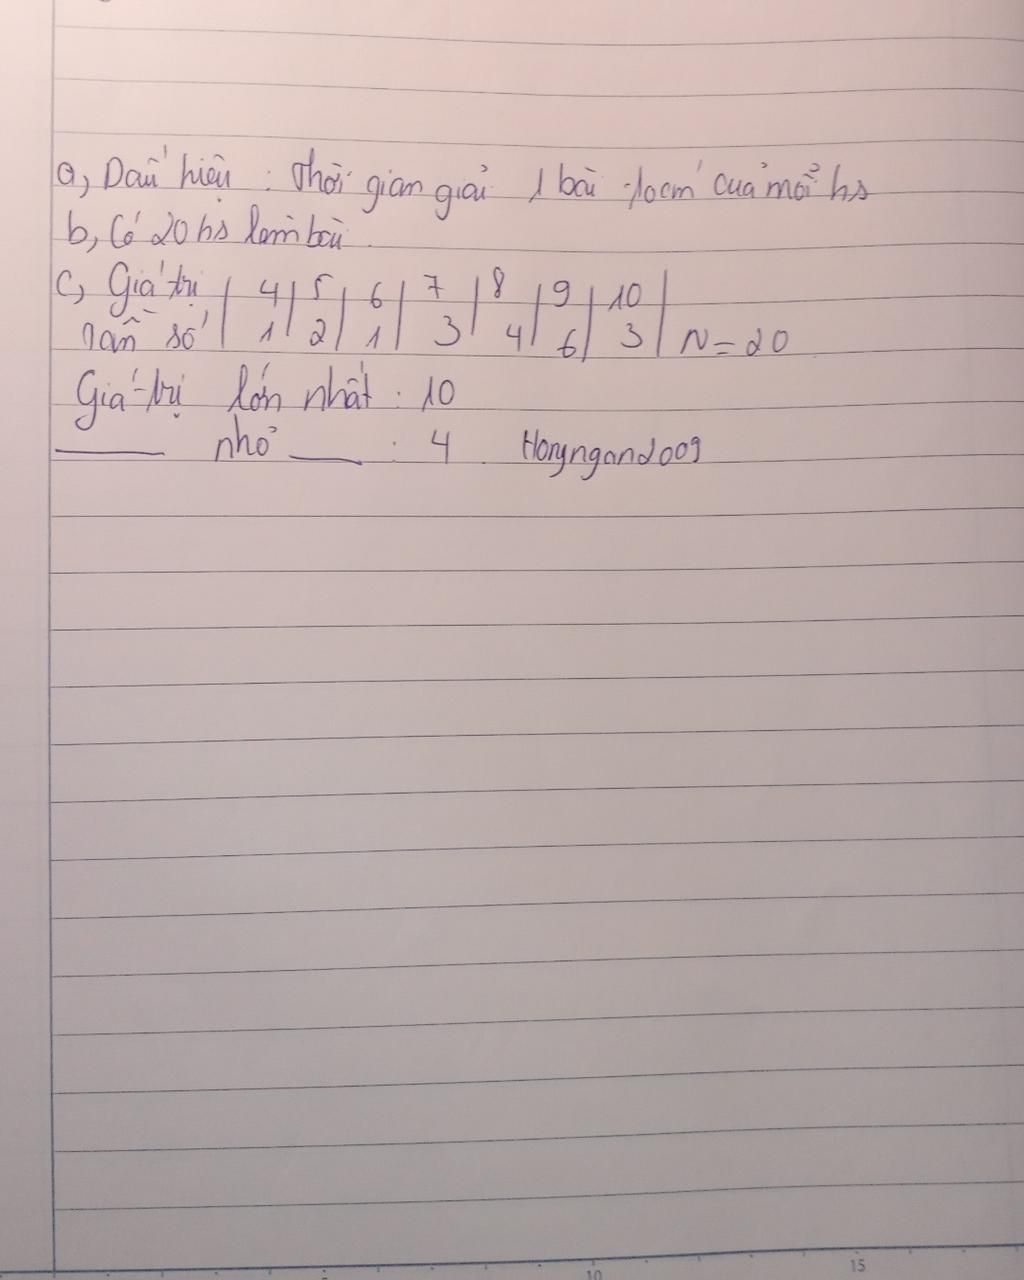 a, Dấu hiệu : Thời gian giải 1 bài toán của mỗi hs
b, Có 20 hs làm bài.
c, Giá trị | 4 | 5 | 6 | 7 | 8 | 9 | 10 |
Tần số | 1 | 2 | 1 | 3 | 4 | 6 | 3 | N = 20
Giá trị lớn nhất : 10
____ nhỏ ____ : 4 Hongngan2009
10 15